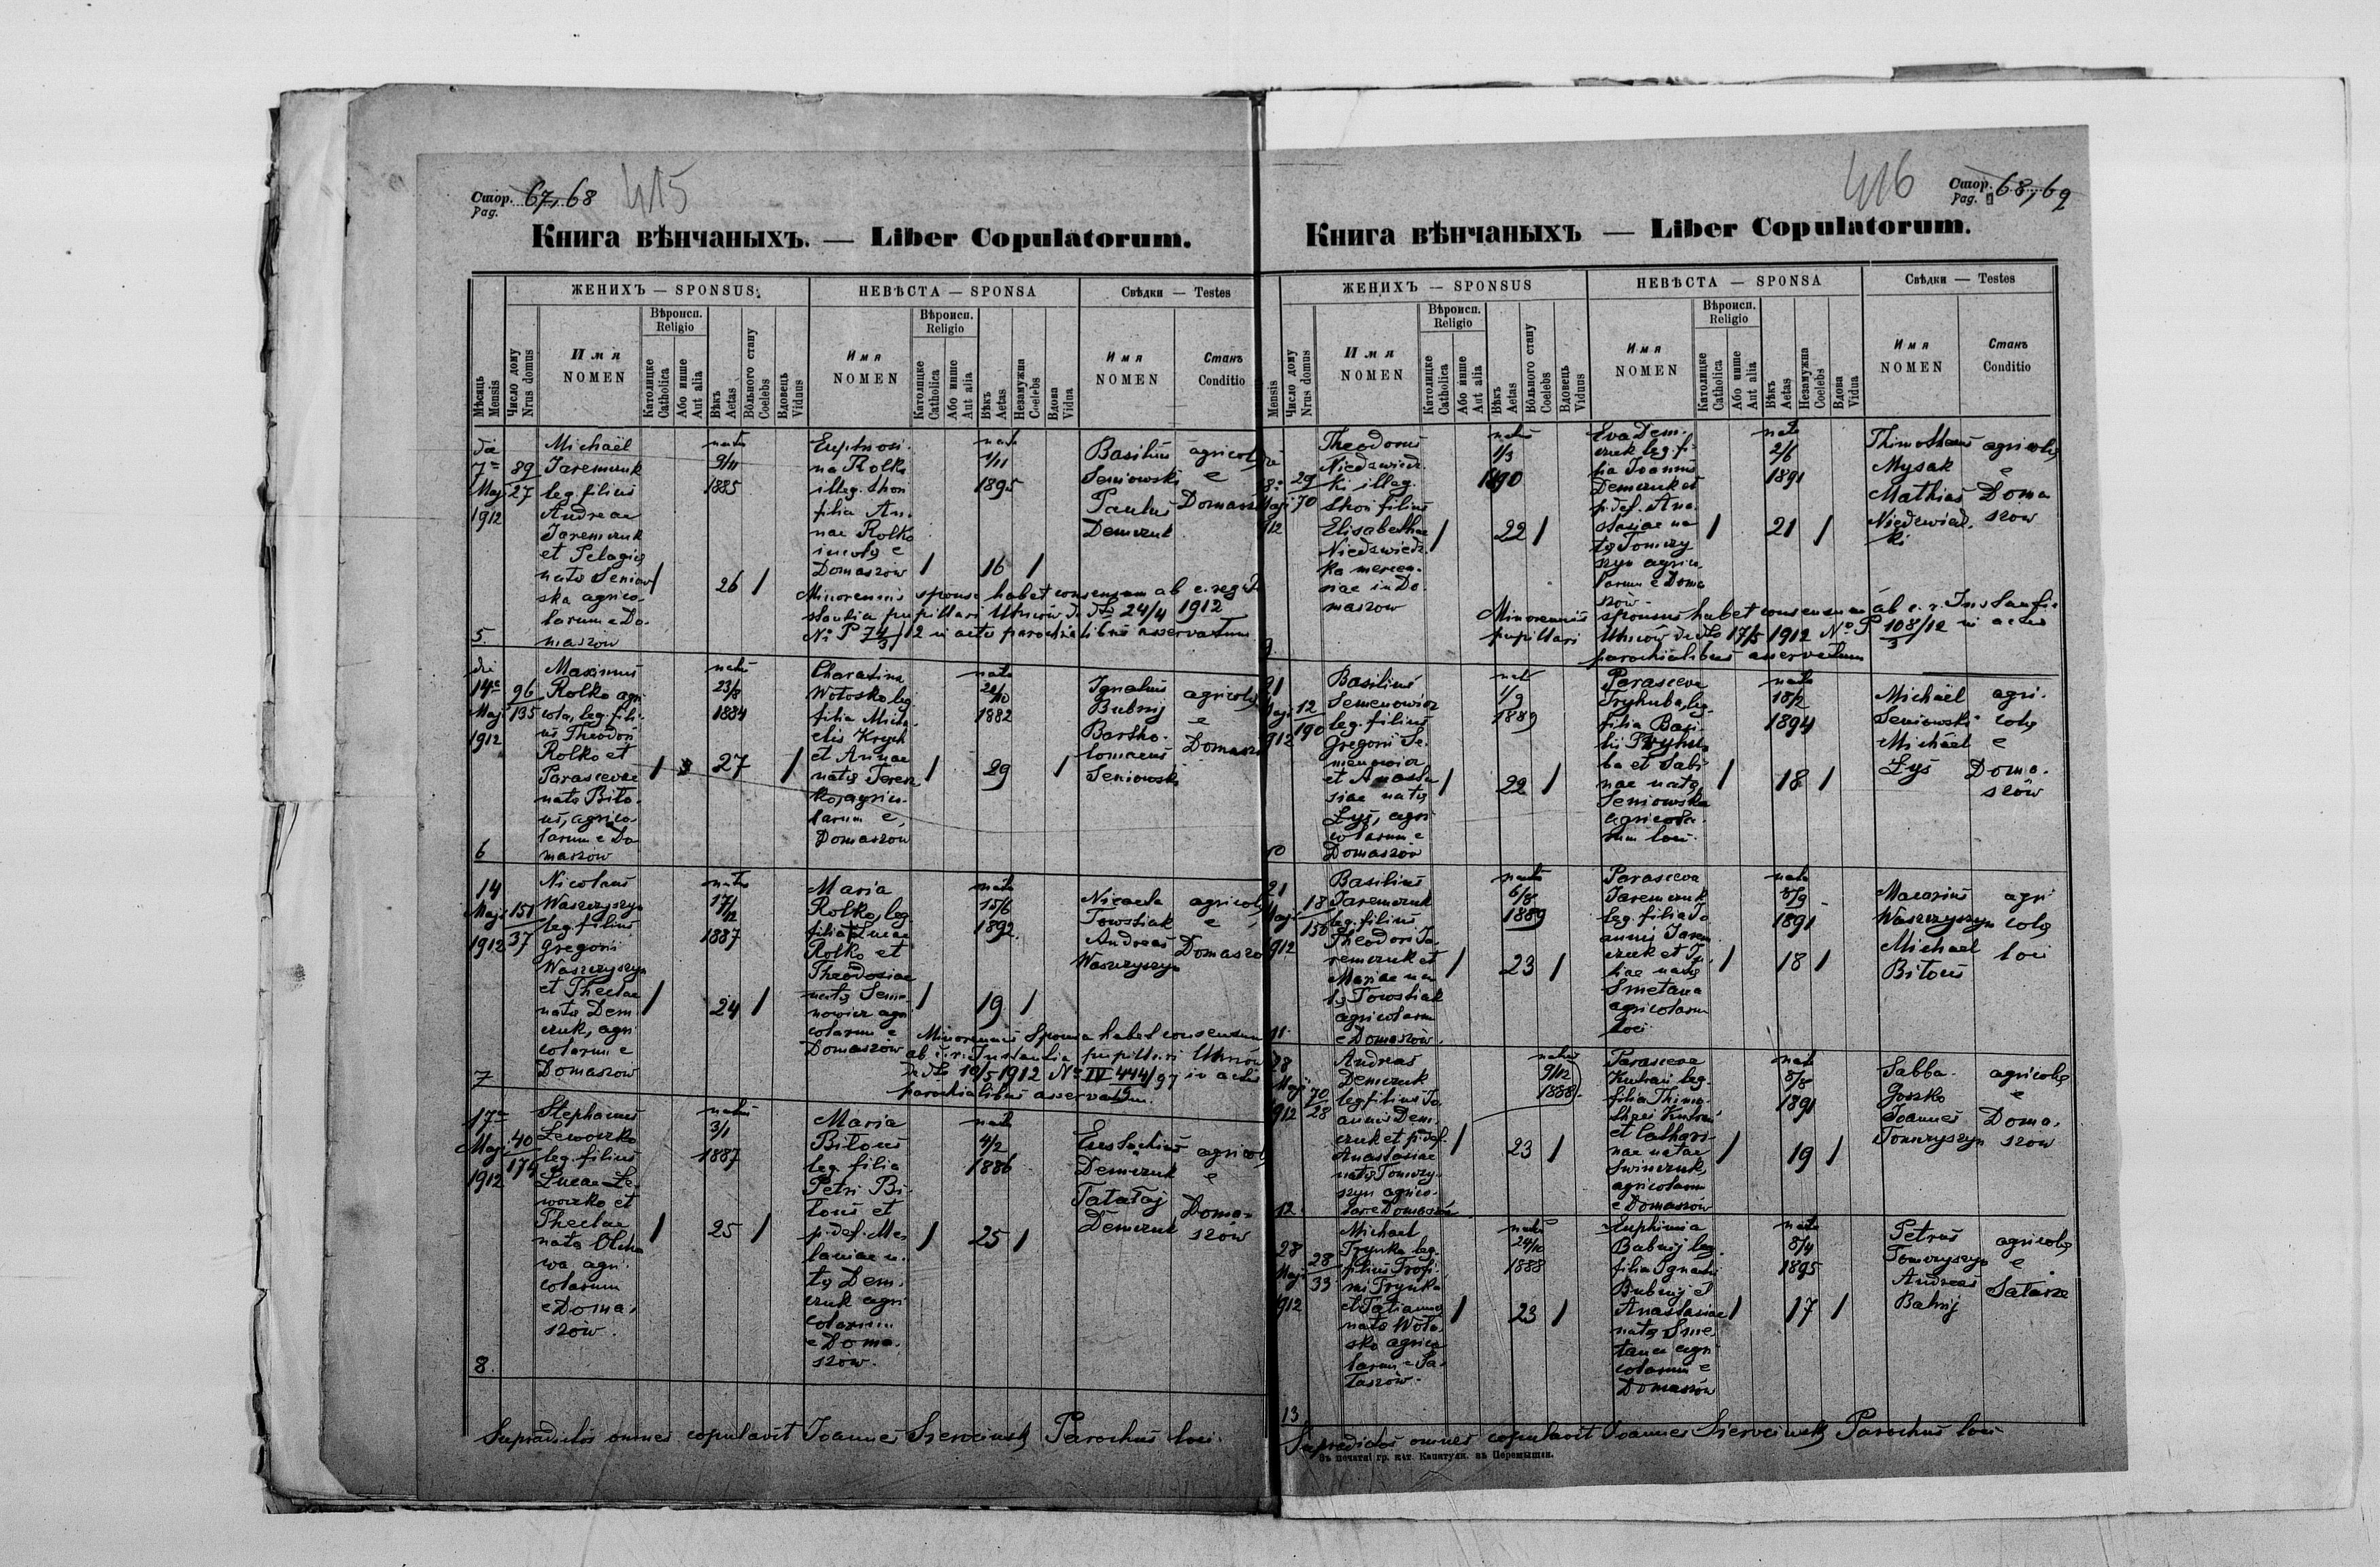 Стор. 67, 68 415
Pag.
Книга вѣнчаныхъ. — Liber Copulatorum.
Мѣсяць Mensis
Число дому Nrus domus
ЖЕНИХЪ — SPONSUS
Имя NOMEN
Вѣроисп. Religio
Католицке Catholica
Або инше Aut alia
Вѣкъ Aetas
Вôльного стану Coelebs
Вдовець Viduus
НЕВѢСТА — SPONSA
Имя NOMEN
Вѣроисп. Religio
Католицке Catholica
Або инше Aut alia
Вѣкъ Aetas
Незамужна Coelebs
Вдова Vidua
Свѣдки — Testes
Имя NOMEN
Станъ Conditio
5.
7a
Maji
1912
89
27
Michaël
Jaremczuk
leg. filius
Andreae
Jaremczuk
et Pelagia
nata Seniow
ska agrico
larum e Do
maszów
natus
9/11
1885
26
Euphrosi
na Rolko
illeg. thori
filia An
nae Rolko
incola e
Domaszów
nata
1/11
1895
16
Basilius
Seniowski
Paulus
Demczuk
agricola
e
Domasz
Minorennis sponsa habet consensum ab c. reg. In
stantia pupillari Uhnów de dto 24/4 1912
No P 74/12 in actis parochialibus asservatum
3
6
die
14a
Maji
1912
96
135
Maximus
Rolko agri
cola, leg. fili
us Theodori
Rolko et
Parascevae
nata Bilo
us, agrico
larum e Do
maszów
natus
23/8
1884
27
Charitina
Wołosko leg.
filia Micha
elis Krych
et Annae
agrico
larum e
Domaszów
nata
1882
29
Ignatius
Bubnij
Bartho
lomaeus
Seniowski
agricola
e
Domasz
7
14
Maji
1912
151
37
Nicolaus
Waszczyszyn
leg. filius
Gregorii
Waszczyszyn
et Theclae
nata Dem
czuk, agri
colarum e
Domaszów
natus
17/12
1887
24
Maria
Rolko, leg.
filia Lucae
Rolko et
Theodosiae
nata Seme
nowicz agri
colarum e
Domaszów
nata
15/6
1892
19
Nicaeta
Towstiak
Andreas
Waszczyszyn
agricola
e
Domaszo
Minorennis Sponsa habet consensum
ab c. r. Instantia pupillari Uhnów
de dto 10/5 1912 No IV 444/97 in actis
parochialibus asservatum.
8.
17a
Maji
1912
40
174
Stephanus
Lewoczko
leg. filius
Lucae Le
woczko et
Theclae
nata
wa agri
colarum
e Doma
szów.
natus
3/1
1887
25
Maria
Bilous
leg. filia
Petri Bi
lous et
p. def. Me
laniae na
ta Dem
czuk agri
colarum
e Doma
szów.
nata
4/2
1886
25
Eustachius
Demczuk
Demczuk
agricol
e
Doma
szów
Supradictos omnes copulavit Joannes Parochus loci.
Стор. 68, 69 416
Pag.
Книга вѣнчаныхъ — Liber Copulatorum.
Mensis
Число дому Nrus domus
ЖЕНИХЪ — SPONSUS
Имя NOMEN
Вѣроисп. Religio
Католицке Catholica
Або инше Aut alia
Вѣкъ Aetas
Вôльного стану Coelebs
Вдовець Viduus
НЕВѢСТА — SPONSA
Имя NOMEN
Вѣроисп. Religio
Католицке Catholica
Або инше Aut alia
Вѣкъ Aetas
Незамужна Coelebs
Вдова Vidua
Свѣдки — Testes
Имя NOMEN
Станъ Conditio
9
Maji
912
29
70
Theodorus
Niedzwiedz
ki illeg.
thori filius
Elisabethae
Niedzwiedz
ka mercen
riae in Do
maszow
natus
1/3
1890
22
Eva Dem
czuk leg. fi
lia Joannis
Demczuk et
p. def. Ana
stasiae na
ta Tomczy
szyn agrico
larum e Doma
szów
nata
2/6
1891
21
Thimotheus
Mysak
Mathias
Niedzwied
ki
agricola
e
Doma
szow
Minorennis sponsus habet consensum ab c. r. Instantia
pupillari Uhnów de dto 17/5 1912 No P 108/12 in actis
3
parochialibus asservatum
10
21
Maji
912
12
190
Basilius
Semenowicz
leg. filius
Gregorii Se
menowicz
et Anasta
siae nata
Łyś, agri
colarum e
Domaszów
1/9
1889
22
Parasceva
Tryhuba, leg.
filia Basi
lii Tryhu
ba et Sabi
nae nata
Seniowska
agricola
rum loci.
nata
18/2
1894
18
Michaël
Seniowski
Michaël
Łyś
agri
cola
e
Doma
szów
11
21
Maji
912
18
156
Basilius
Jaremczuk
leg. filius
Theodori Ja
remczuk et
Mariae na
ta Towstiak
agricolarum
e Domaszów.
natus
6/8
1889
23
Parasceva
Jaremczuk
leg. filia Jo
annis Jarem
czuk et
liae nata
Smetana
agricolarum
loci
nata
8/9
1891
18
Macarius
Waszczyszyn
Michael
Bilous
agri
cola
loci
12
28
Maji
912
70
28
Andreas
Demczuk
leg filius Jo
annis Dem
czuk et p. def.
Anastasiae
nata Tomczy
szyn agrico
lar e Domaszów
natus
9/12
1888
23
Parasceva
leg.
filia Thimo
thei
et Cathari
nae natae
agricolarum
e Domaszów
nata
8/8
1891
19
Sabba
Goszko
Joannes
Tomczyszyn
agricola
e
Doma
szow
13
28
Maji
912
28
33
Michael
Trynka leg.
filius Trofi
mi Trynka
et Tatianna
nata Woło
sko agrico
larum e Sa
taszów.
natus
24/10
1888
23
Euphimia
Bubnij leg.
filia Ignatii
Bubnij et
Anastasiae
nata Sme
tana agri
colarum e
Domaszów
nata
8/4
1895
17
Petrus
Tomczyszyn
Andreas
agricola
e
Supradictos omnes copulavit Joannes Parochus loci
Въ печатни гр. кат. Капитули. въ Перемышли.